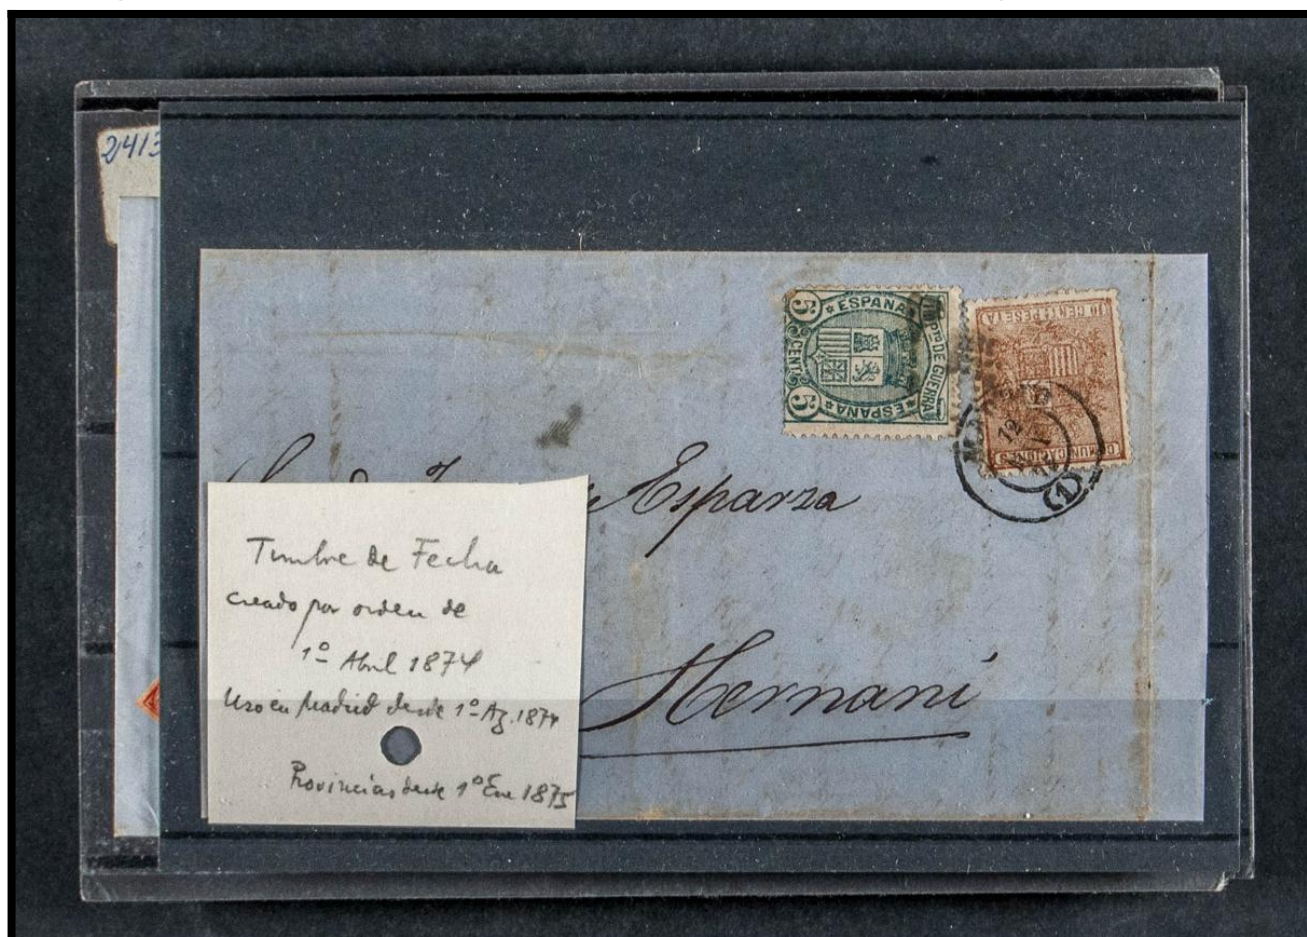 2413
ESPAÑA
5 CENT 5
IMPTO DE GUERRA
ESPAÑA
10 CENT PESETA
COMUNICACIONES
12
(1)
Esparza
Hernani
Timbre de Fecha
creado por orden de
1º Abril 1874
Uso en Madrid desde 1º Ag. 1874
Provincias desde 1º Ene 1875